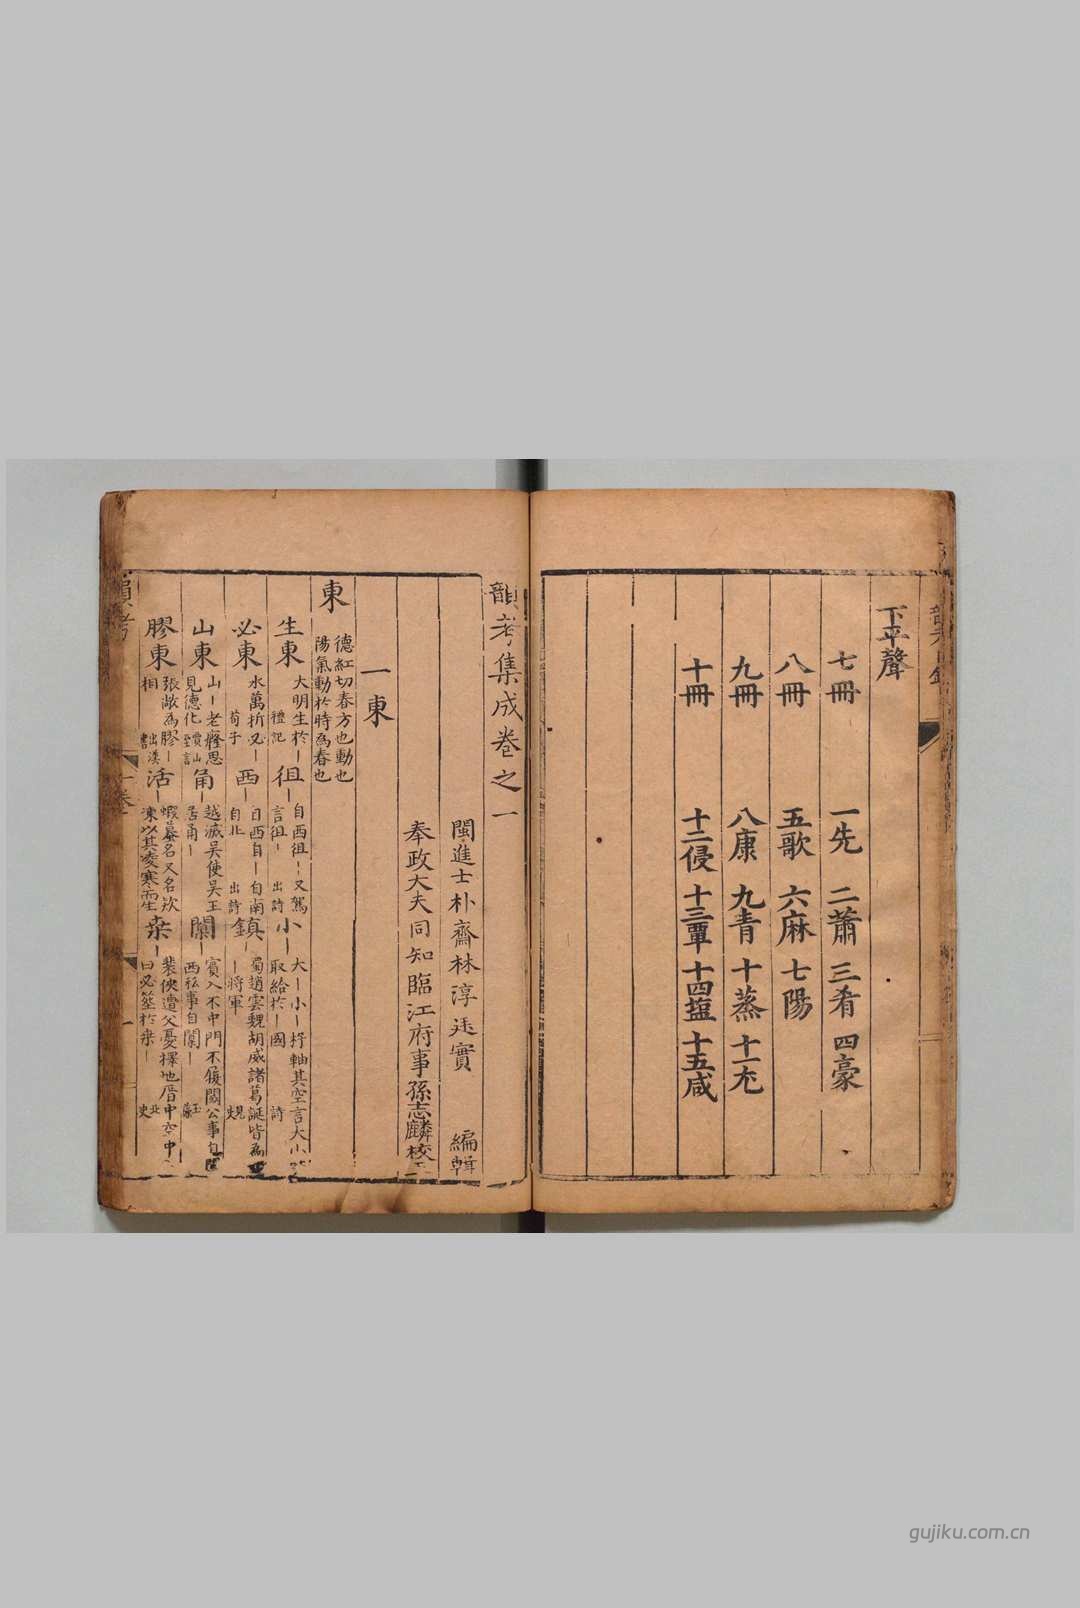 下平聲
七冊 一先 二蕭 三肴 四豪
八冊 五歌 六麻 七陽
九冊 八庚 九青 十蒸 十一尤
十冊 十二侵 十三覃 十四塩 十五咸
韻考集成卷之一
閩進士朴齋林淳廷實 編輯
奉政大夫同知臨江府事孫志麟校
一東
東 德紅切春方也動也
陽氣動於時為春也
生東 大明生於｜
禮記
徂｜ 自西徂｜又駕
言徂｜ 出詩
小｜ 大｜小｜杼軸其空言大小
取給於｜國 詩
必東 水萬折必｜
荀子
西｜ 自西自｜自南
自北 出詩
鎮｜ 蜀趙雲魏胡威諸葛誕皆為
｜將軍
山東 山｜老癃思
見德化 賈山至言
角｜ 越滅吳使吳王
居甬｜
閫｜ 賓入不中門不履閾公事自
西私事自闑｜ 玉藻
膠東 張敞為膠｜
相 出漢書
活｜ 蝦蟇名又名坎
凍以其凌寒而生
桒｜ 裴俠遭父憂擇地厝中空中
曰必塟於桒｜ 北史
韻考
一卷
一
gujiku.com.cn